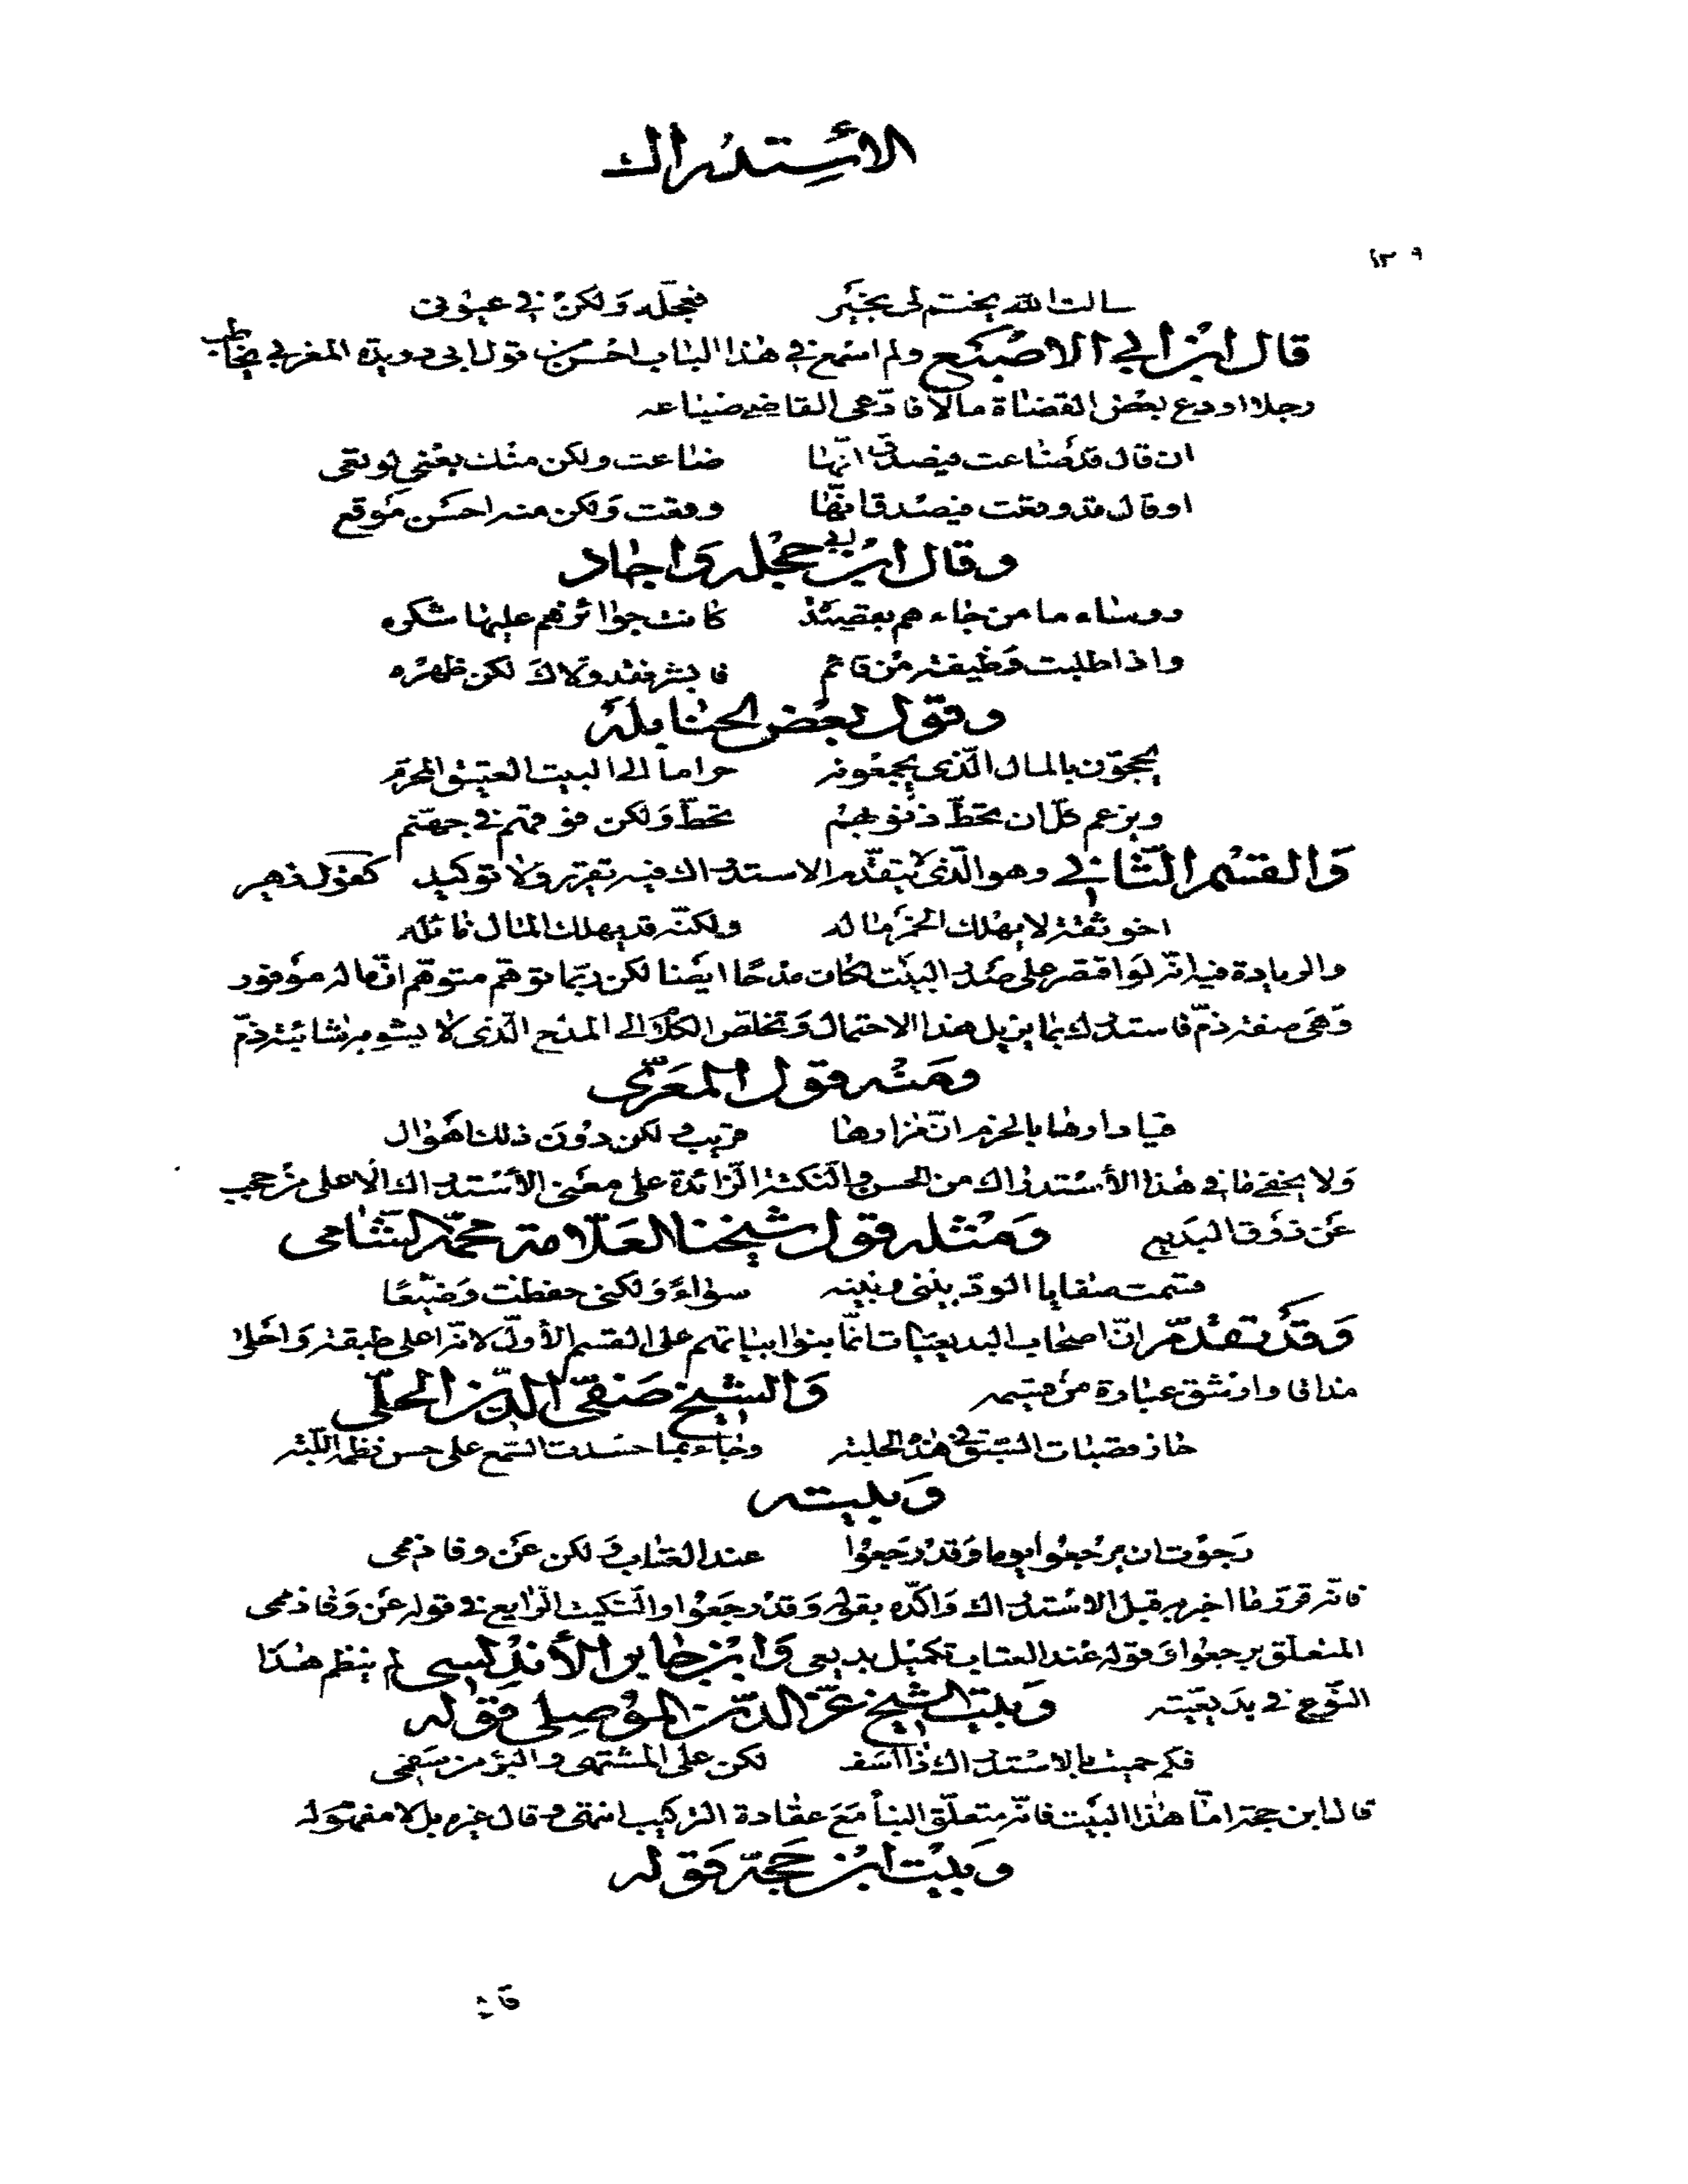 الاستدراك
١٣٩
سالت الله يختم لى بخير فعجله ولكن في عيوني
قال ابن ابي الاصبع ولم اسمع في هذا الباب احسن من قول ابى دويدة المغربي يخاطب
رجلا اودع بعض القضاة مالا فادّعى القاضي ضياعه
ان قال قد ضاعت فيصدق انّها ضاعت ولكن منك يعني لو تعى
او قال قد وقعت فيصدق انّها وقعت ولكن منه احسن موقع
وقال ابن ابي حجله واجاد
روساء ما من جاءهم بقصيدة كانت جوائزهم عليها شكره
واذا طلبت وظيفة من قائم فابشر فقد ولاك لكن ظهره
وقول بعض الحنابلة
يحجّون بالمال الّذى يجمعونه حراما الى البيت العتيق المحرّم
ويزعم كلّ ان تحطّ ذنوبهم تحطّ ولكن فوقهم في جهنّم
والقسم الثّاني وهو الّذى لا يتقدّم الاستدراك فيه تقرير ولا توكيد كقول زهير
اخو ثقة لا يهلك الخمر ماله ولكنّه قد يهلك المال نائله
والزيادة فيه انّه لو اقتصر على صدر البيت لكان مدحًا ايضا لكن ربّما توهّم متوهّم انّ ماله موفور
وهى صفة ذمّ فاستدرك بما يزيل هذا الاحتمال وتخلّص الكلام الى المدح الّذى لا يشوبه شائبة ذمّ
ومنه قول المعرّى
فيا دارها بالحزم انّ مزارها قريب ولكن دون ذلك اهوال
ولا يخفى ما في هذا الأستدراك من الحسن والنكتة الزائدة على معنى الأستدراك الّا على من حجب
عن ذوق البديع ومثله قول شيخنا العلّامة محمّد الشّامى
قسمت صفايا الودّ بينى وبينه سواءً ولكنى حفظت وضيّعا
وقد تقدّم انّ اصحاب البديعيّات انّما بنوا ابياتهم على القسم الأوّل لانّه اعلى طبقة واحلى
مذاقى وارشق عبارة من قسيمه والشيخ صفىّ الدّين الحلّى
حاز قصبات السّبق في هذه الحلبة وجاء بما حسدت السّمع على حسن نظمه اللّبّة
وبيته
رجوت ان يرجعوا يوما وقد رجعوا عند العتاب ولكن عن وفا ذممى
فانّه قرّر ما اخبر به قبل الاستدراك واكّده بقوله وقد رجعوا والتنكيت الرّابع في قوله عن وفا ذممى
المتعلّق برجعوا وقوله عند العتاب تكميل بديعى وابن جابر الأندلسى لم ينظم هذا
النّوع في بديعيّته وبيت الشيخ عزّ الدّين الموصلى قوله
فكم حميت بالاستدراك ذا اسف لكن على المشتهى والبرؤ من سقمى
قال ابن حجة امّا هذا البيت فانّه متعلّق البنأ مع عقادة التركيب انتهى وقال غيره بل لا مفهوم له
وبيت ابن حجّة قوله
قا